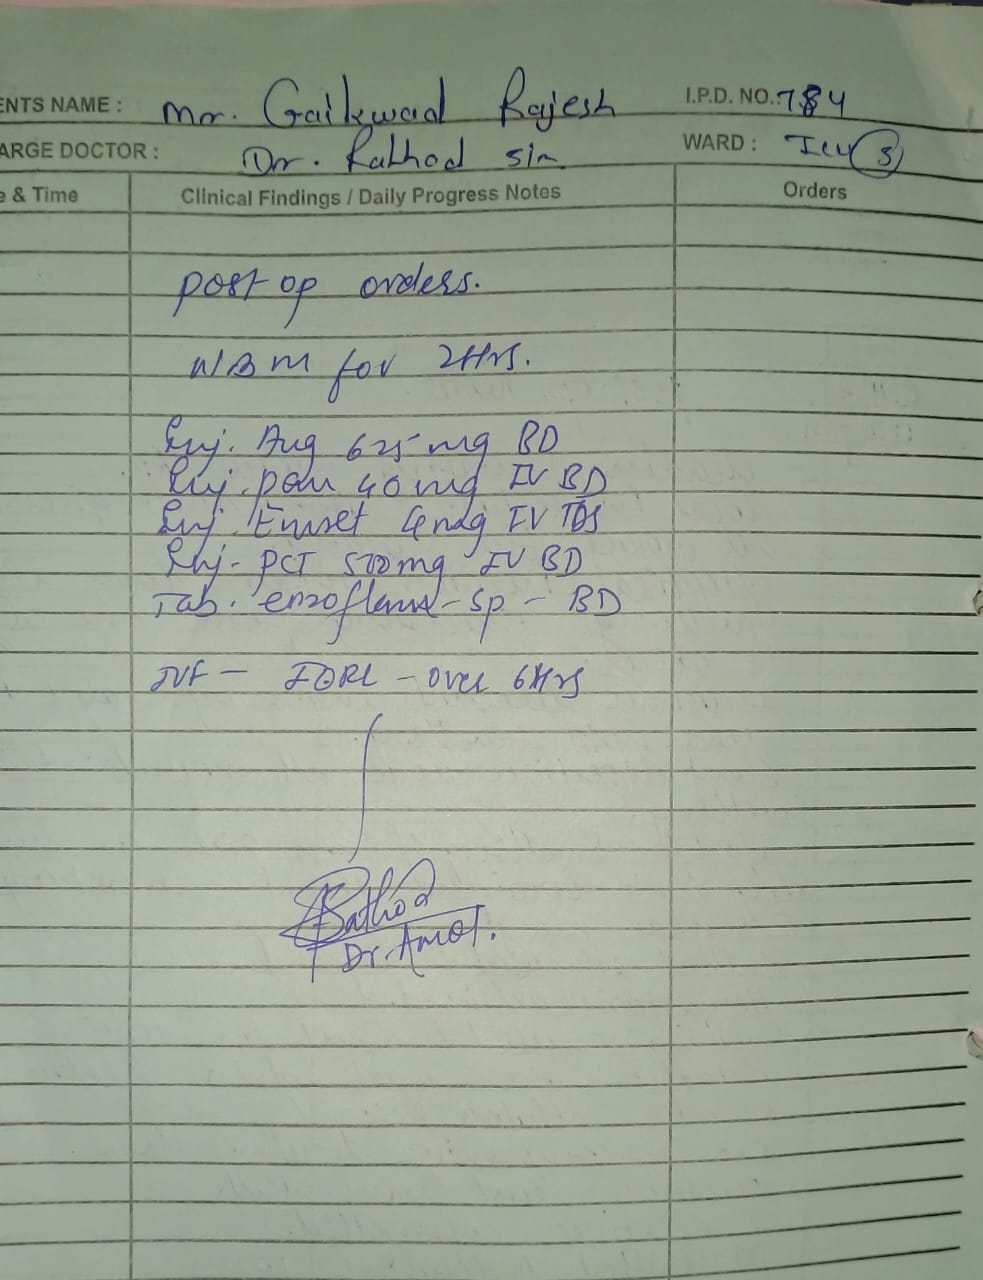 ENTS NAME : Mr. Gaikwad Rajesh I.P.D. NO.: 784
ARGE DOCTOR : Dr. Rathod sir WARD : ICU (3)
e & Time Clinical Findings / Daily Progress Notes Orders
post op orders.
NBM for 2Hrs.
Inj. Aug 625 mg BD
Inj. pan 40 mg IV BD
Inj. Emset 4mg IV TDS
Inj- PCT 500mg IV BD
Tab. enzoflam-SP - BD
IVF - RL - over 6Hrs
Rathod
Dr. Amol.